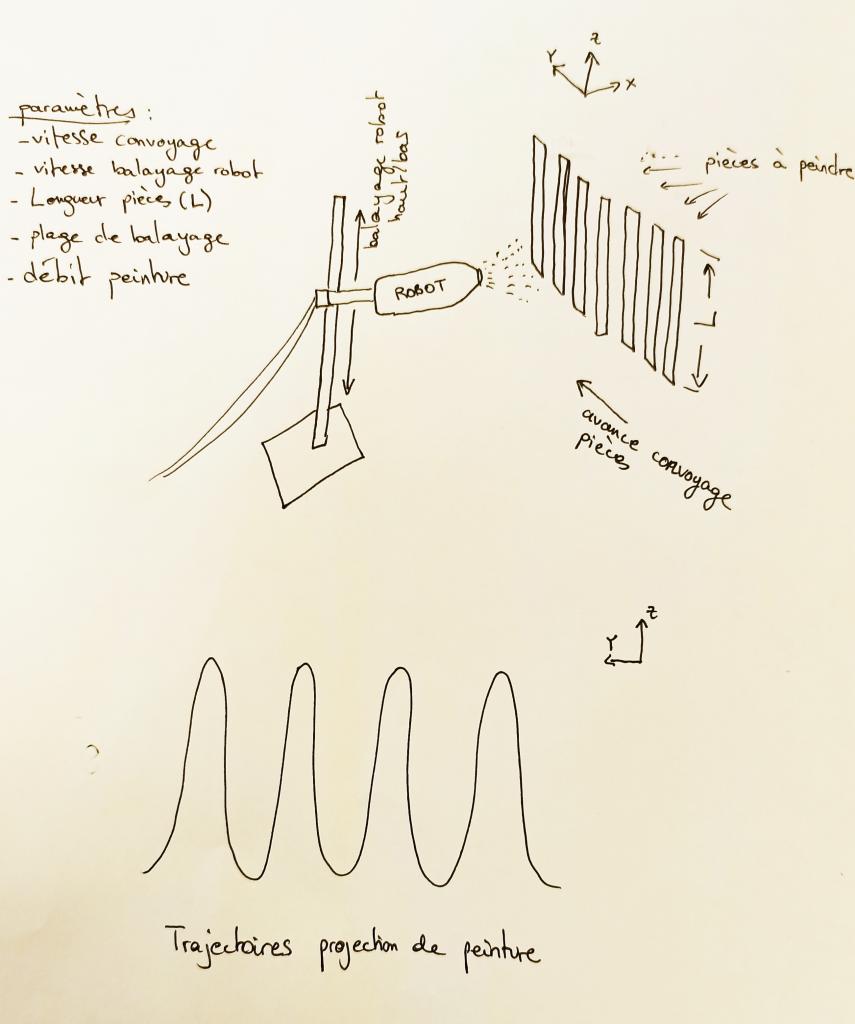 paramètres :
- vitesse convoyage
- vitesse balayage robot
- Longueur pièces (L)
- plage de balayage
- débit peinture
balayage robot
haut/bas
ROBOT
Z
Y
X
pièces à peindre
L
avance convoyage
pièces
Z
Y
Trajectoires projection de peinture